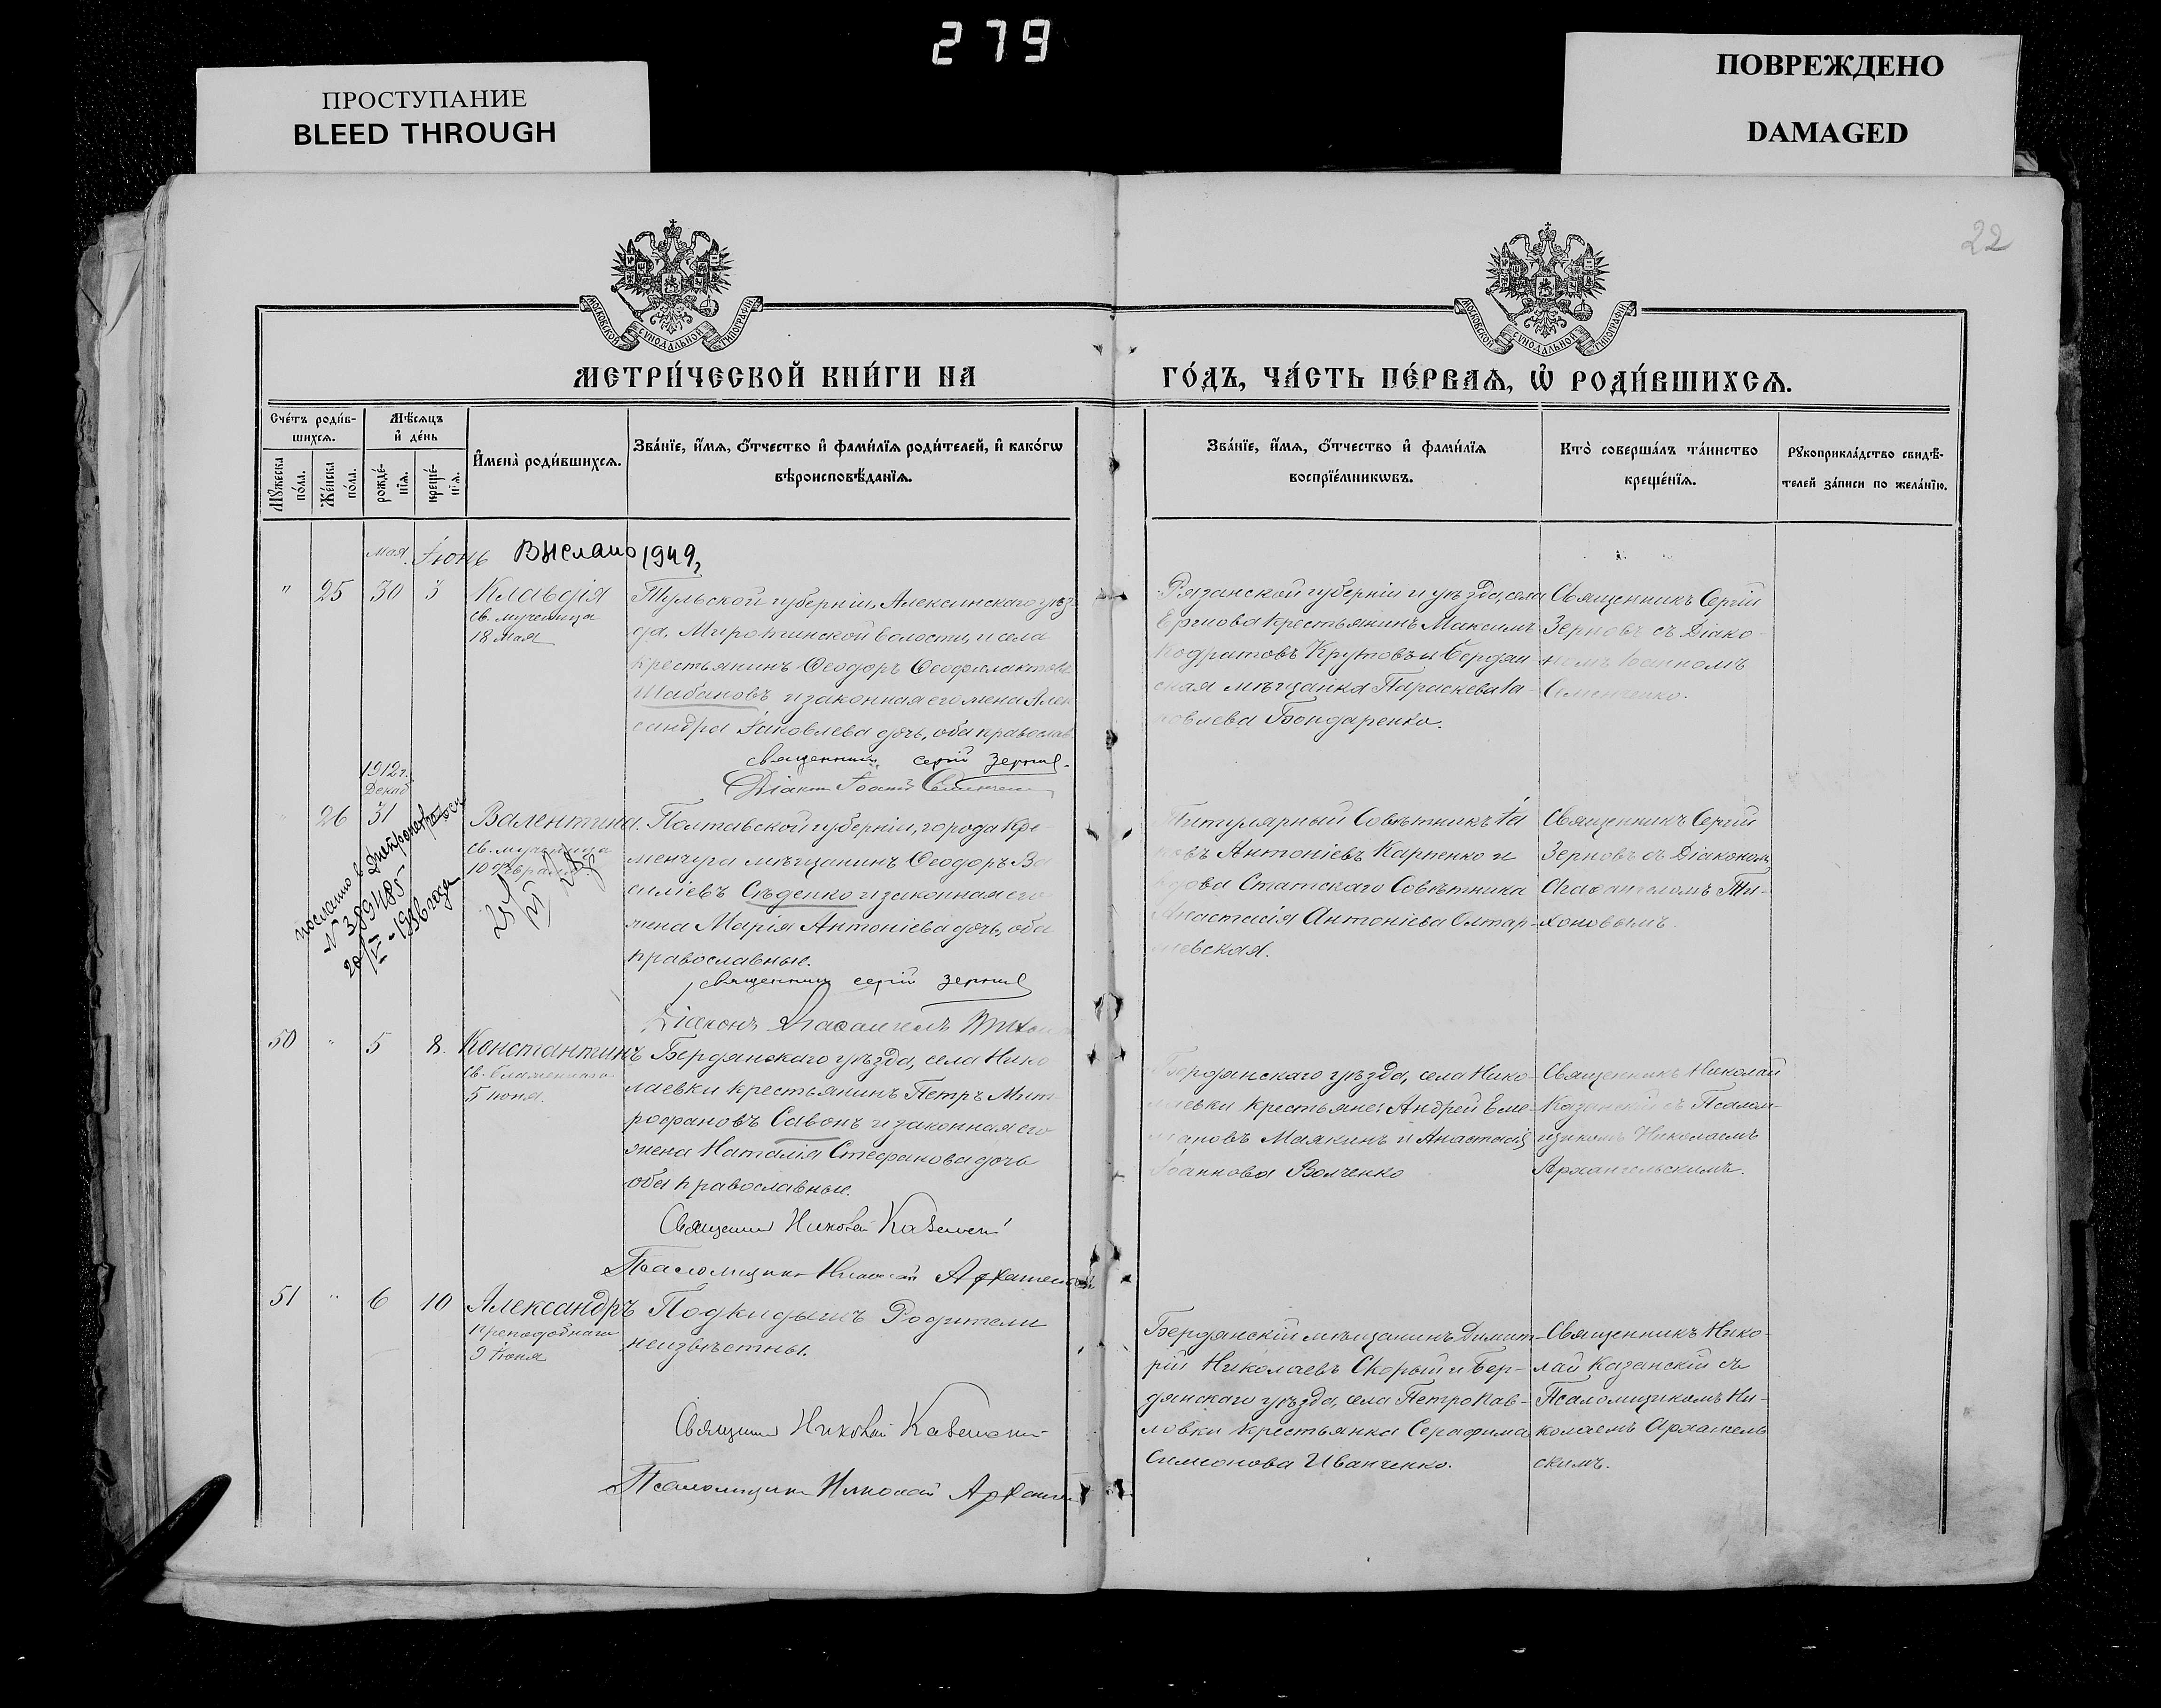 279
ПРОСТУПАНИЕ
BLEED THROUGH
ПОВРЕЖДЕНО
DAMAGED
22
МОСКОВСКОЙ СУНОДАЛЬНОЙ ТИПОГРАФІИ
МОСКОВСКОЙ СУНОДАЛЬНОЙ ТИПОГРАФІИ
МЕТРИ́ЧЕСКОЙ КНИ́ГИ НА
ГО́ДЪ, ЧА́СТЬ ПЕ́РВАѦ, Ѡ҆ РОДИ́ВШИХСѦ.
Сче́тъ роди́в-
шихсѧ.
Мѣ́сѧцъ
и҆ де́нь
Мꙋжеска
по́ла.
Же́нска
по́ла.
рожде́-
нїѧ.
креще́-
нїѧ.
И҆мена̀ роди́вшихсѧ.
Зва́нїе, и҆́мѧ, ѻ҆́тчество и҆ фами́лїѧ роди́телей, и҆ како́гѡ
вѣроисповѣ́данїѧ.
Зва́нїе, и҆́мѧ, ѻ҆́тчество и҆ фами́лїѧ
воспрїе́мникѡвъ.
Кто̀ соверша́лъ та́инство
креще́нїѧ.
Рꙋкоприкла́дство свидѣ́-
телей за́писи по жела́нїю.
мая Іюнь Выслано 1949,
" 25 30 3 Клавдія
св. мученица
18 мая
Тульской губерніи, Алексинскаго уѣз-
да, Миротинской волости и села
крестьянинъ Ѳеодоръ Ѳеофилактовъ
Шабановъ и законная его жена Алек
сандра Іаковлева дочь, оба православ
священникъ Сергій Зерновъ
Діаконъ Іоаннъ Семенченко
Рязанской губерніи и уѣзда, села
крестьянинъ Максимъ
Кодратовъ Крутовъ и Бердян
ская мѣщанка Параскева Іа-
ковлева Бондаренко.
Священникъ Сергій
Зерновъ съ Діако-
номъ Іоанномъ
Семенченко.
1912 г.
Декаб
26 31 Валентина.
св. мученица
10 Февраля
послано в Днепропетровск
№ 3891485
20/VI - 1936 года
Полтавской губерніи, города Кре
менчуга мѣщанинъ Ѳеодоръ Ва
силіевъ Сѣденко и законная его
жена Марія Антоніева дочь, оба
православные.
священникъ Сергій Зерновъ
Діаконъ Агаѳангелъ Тихон
Титулярный Совѣтникъ Іа
ковъ Антоніевъ Карпенко и
вдова Статскаго Совѣтника
Анастасія Антоніева
Священникъ Сергій
Зерновъ съ Діакономъ
Агаѳангеломъ Ти-
хоновымъ.
50 " 5 8. Константинъ
св. блаженнаго
5 іюня.
Бердянскаго уѣзда, села Нико
лаевки крестьянинъ Петръ Мит-
рофановъ Савонъ и законная его
жена Наталія Стефанова дочь
оба православные.
Священникъ Николай Казанскій
Псаломщикъ Николай Архангельскій
Бердянскаго уѣзда, села Нико-
лаевки крестьяне: Андрей Еме-
ліановъ Маякинъ и Анастасія
Іоаннова Волченко
Священникъ Николай
Казанскій съ Псалом-
щикомъ Николаемъ
Архангельскимъ.
51 " 6 10 Александръ
преподобнаго
9 Іюня
Подкидышъ Родители
неизвѣстны.
Священникъ Николай Казанскій
Псаломщикъ Николай Арханг
Бердянскій мѣщанинъ Димит-
рій Николаевъ Скорый и Бер-
дянскаго уѣзда, села Петропав-
ловки крестьянка Серафима
Симеонова Иванченко.
Священникъ Нико-
лай Казанскій съ
Псаломщикомъ Ни-
колаемъ Архангель
скимъ.